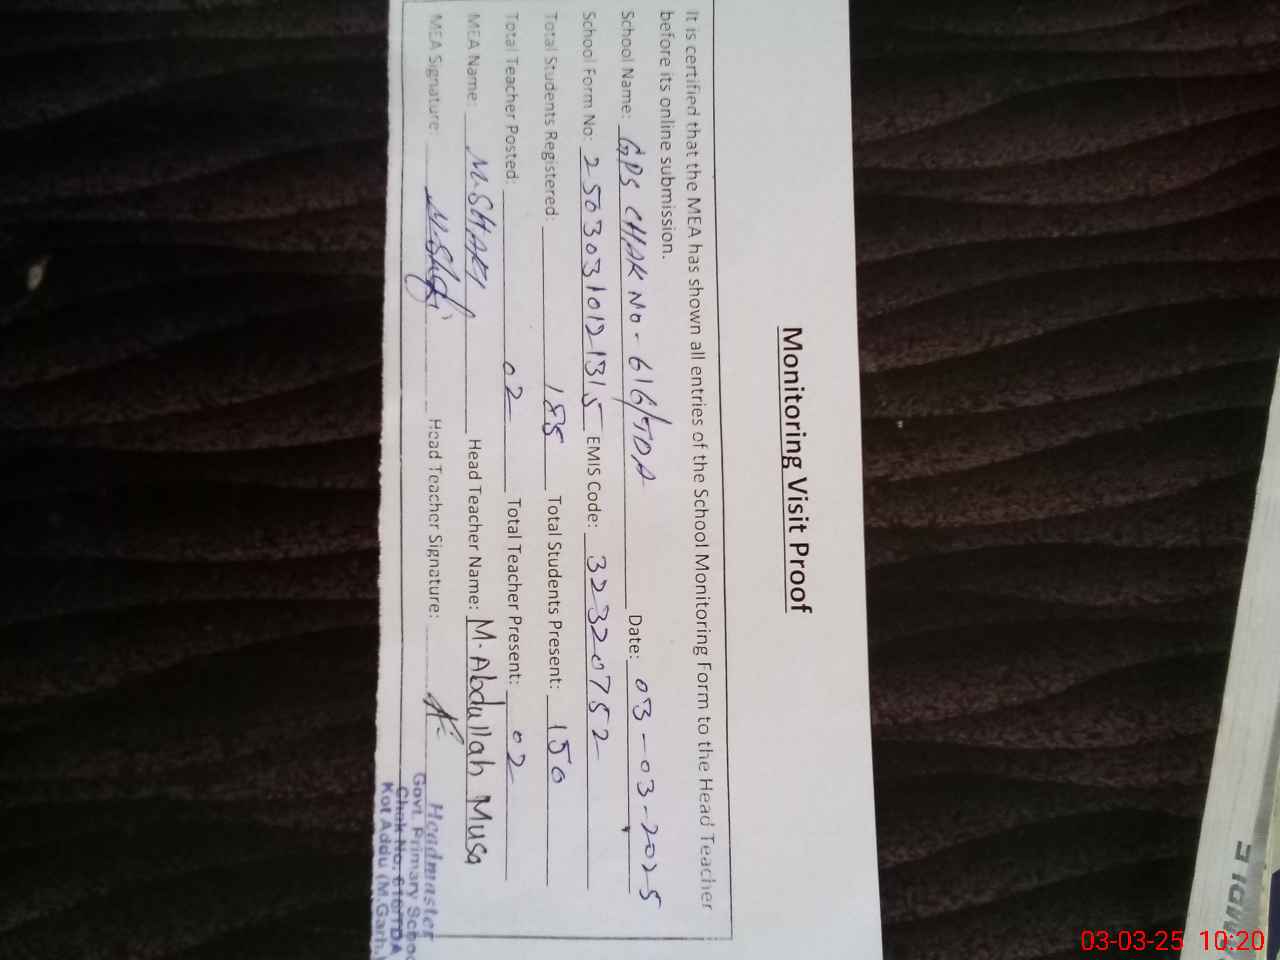 Monitoring Visit Proof
It is certified that the MEA has shown all entries of the School Monitoring Form to the Head Teacher
before its online submission.
School Name: GPS CHAK No- 616/TDA Date: 03-03-2025
School Form No: 25030310121315 EMIS Code: 32320752
Total Students Registered: 185 Total Students Present: 150
Total Teacher Posted: 02 Total Teacher Present: 02
MEA Name: M. Head Teacher Name: M. Abdullah Musa
MEA Signature: Head Teacher Signature:
Headmaster
Govt. Primary School
Chak No. 616/TDA
Kot Addu (M.Garh.)
03-03-25 10:20